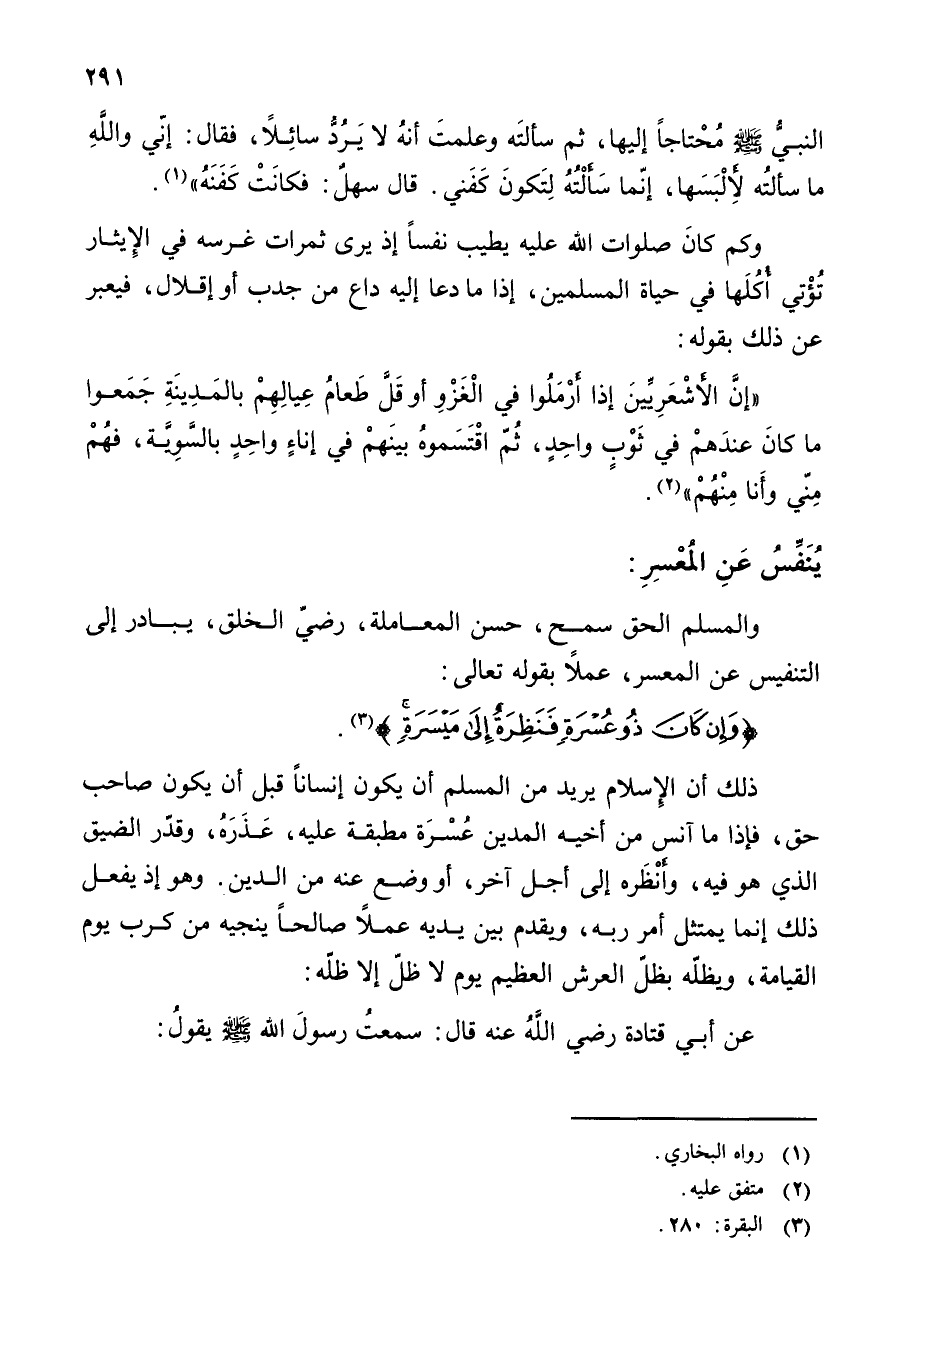 ٢٩١
النبيُّ ﷺ مُحْتاجاً إليها، ثم سألتَه وعلمتَ أنهُ لا يَرُدُّ سائِلاً، فقال: إنّي واللَّهِ
ما سألتُه لِأَلْبَسَها، إنّما سَأَلْتُهُ لِتَكونَ كَفَني. قال سهلٌ: فكانَتْ كَفَنَهُ»(١).
وكم كانَ صلوات الله عليه يطيب نفساً إذ يرى ثمرات غرسه في الإِيثار
تُؤْتي أُكُلَها في حياة المسلمين، إذا ما دعا إليه داع من جدب أو إقلال، فيعبر
عن ذلك بقوله:
«إنَّ الأَشْعَرِيِّينَ إذا أَرْمَلُوا في الْغَزْوِ أو قَلَّ طَعامُ عِيالِهِمْ بالمَدِينَةِ جَمَعوا
ما كانَ عندَهمْ في ثَوْبٍ واحِدٍ، ثُمّ اقْتَسَموهُ بينَهمْ في إناءٍ واحِدٍ بالسَّوِيَّة، فهُمْ
مِنّي وأَنا مِنْهُمْ»(٢).
يُنَفِّسُ عَنِ المُعْسرِ:
والمسلم الحق سمح، حسن المعاملة، رضيّ الخلق، يبادر إلى
التنفيس عن المعسر، عملاً بقوله تعالى:
﴿وَإِن كَانَ ذُو عُسْرَةٍ فَنَظِرَةٌ إِلَىٰ مَيْسَرَةٍ ۚ﴾(٣).
ذلك أن الإِسلام يريد من المسلم أن يكون إنساناً قبل أن يكون صاحب
حق، فإذا ما آنس من أخيه المدين عُسْرَة مطبقة عليه، عَذَرَهُ، وقدّر الضيق
الذي هو فيه، وأَنْظَره إلى أجل آخر، أو وضع عنه من الدين. وهو إذ يفعل
ذلك إنما يمتثل أمر ربه، ويقدم بين يديه عملاً صالحاً ينجيه من كرب يوم
القيامة، ويظلّه بظلّ العرش العظيم يوم لا ظلّ إلا ظلّه:
عن أبي قتادة رضي اللَّهُ عنه قال: سمعتُ رسولَ الله ﷺ يقولُ:
(١) رواه البخاري.
(٢) متفق عليه.
(٣) البقرة: ٢٨٠.